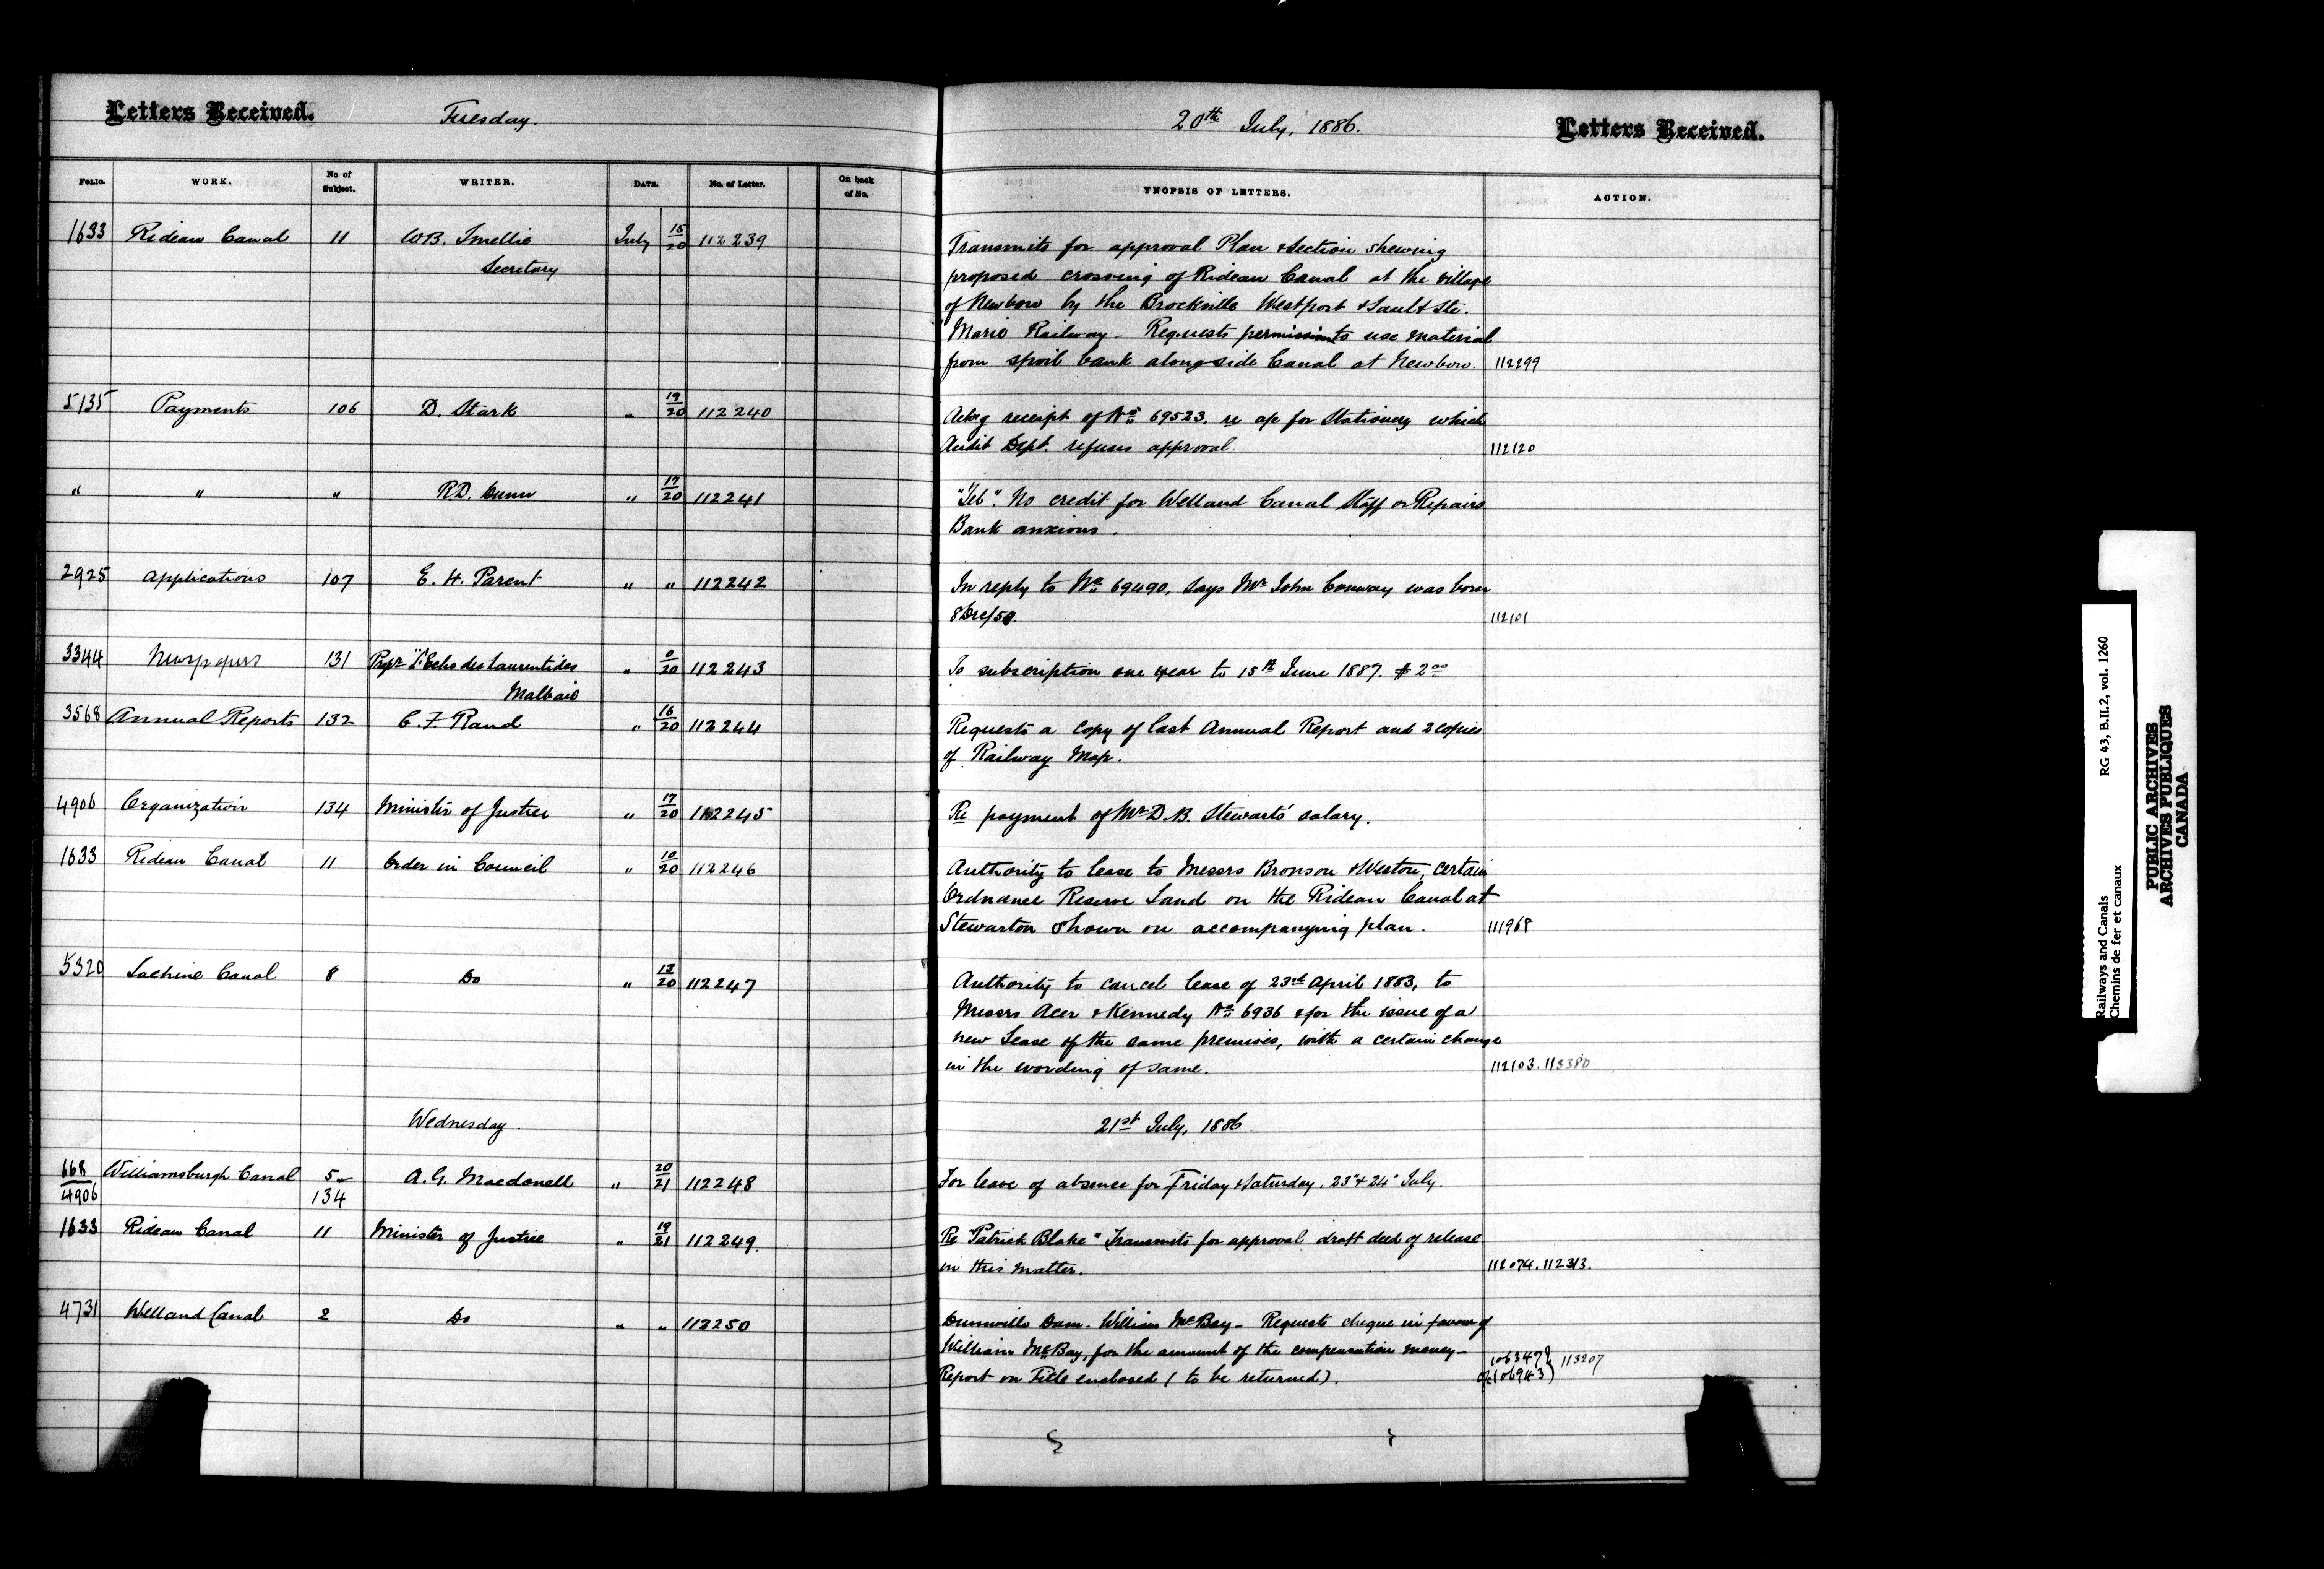 Letters Received.
Tuesday.
20th July, 1886.
Letters Received.
FOLIO. WORK. No. of Subject. WRITER. DATE. No. of Letter. On back of No. YNOPSIS OF LETTERS. ACTION.
1633 Rideau Canal 11 W.B. Smellie July 15/20 112239
Secretary
Transmits for approval Plan & Section shewing
proposed crossing of Rideau Canal at the village
of Newboro by the Brockville Westport & Sault Ste.
Marie Railway - Requests permission to use material
from spoil bank alongside Canal at Newboro. 112299
5135 Payments 106 D. Stark " 19/20 112240
Ackg receipt of No 69523. re ap for Stationery which
Audit Dept. refuses approval. 112120
" " " R.D. Dunn " 19/20 112241
"Tel". No credit for Welland Canal Staff or Repairs
Bank anxious.
2925 Applications 107 E. H. Parent " " 112242
In reply to No 69490, says Mr John Conway was born
8 Dec/50. 112101
3344 Newspapers 131 Propr "L'Echo des Laurentides " 0/20 112243
Malbaie
To subscription one year to 15th June 1887. $2.00
3568 Annual Reports 132 C. F. Rand " 16/20 112244
Requests a copy of last Annual Report and 2 copies
of Railway Map.
4906 Organization 134 Minister of Justice " 17/20 112245
Re payment of Mr D.B. Stewart's salary.
1633 Rideau Canal 11 Order in Council " 10/20 112246
Authority to lease to Messrs Bronson & Weston, certain
Ordnance Reserve Land on the Rideau Canal at
Stewarton shown on accompanying plan. 111968
5320 Lachine Canal 8 Do " 13/20 112247
Authority to cancel lease of 23rd April 1883, to
Messrs Acer & Kennedy No 6936 & for the issue of a
new Lease of the same premises, with a certain change
in the wording of same. 112103. 113380
Wednesday.
21st July, 1886.
668/4906 Williamsburgh Canal 5 134 A. G. Macdonell " 20/21 112248
For leave of absence for Friday & Saturday. 23" & 24" July.
1633 Rideau Canal 11 Minister of Justice " 19/21 112249.
Re "Patrick Blake" Transmits for approval draft deed of release
in this matter. 112074. 112313.
4731 Welland Canal 2 Do " " 112250
Dunnville Dam. William McBay - Requests cheque in favour of
William McBay, for the amount of the compensation money -
Report on Title enclosed (to be returned). 106347 106943 113207
Railways and Canals RG 43, B.II.2, vol. 1260
Chemins de fer et canaux
PUBLIC ARCHIVES
ARCHIVES PUBLIQUES
CANADA